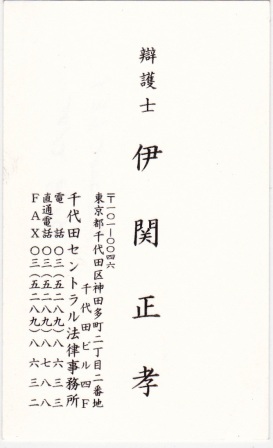 辯護士
伊関正孝
〒一〇一-〇〇四六
東京都千代田区神田多町二丁目二番地
千代田ビル四F
千代田セントラル法律事務所
電　話〇三(五二八九)八六三三
直通電話〇三(五二八九)八七八八
FAX〇三(五二八九)八六三二